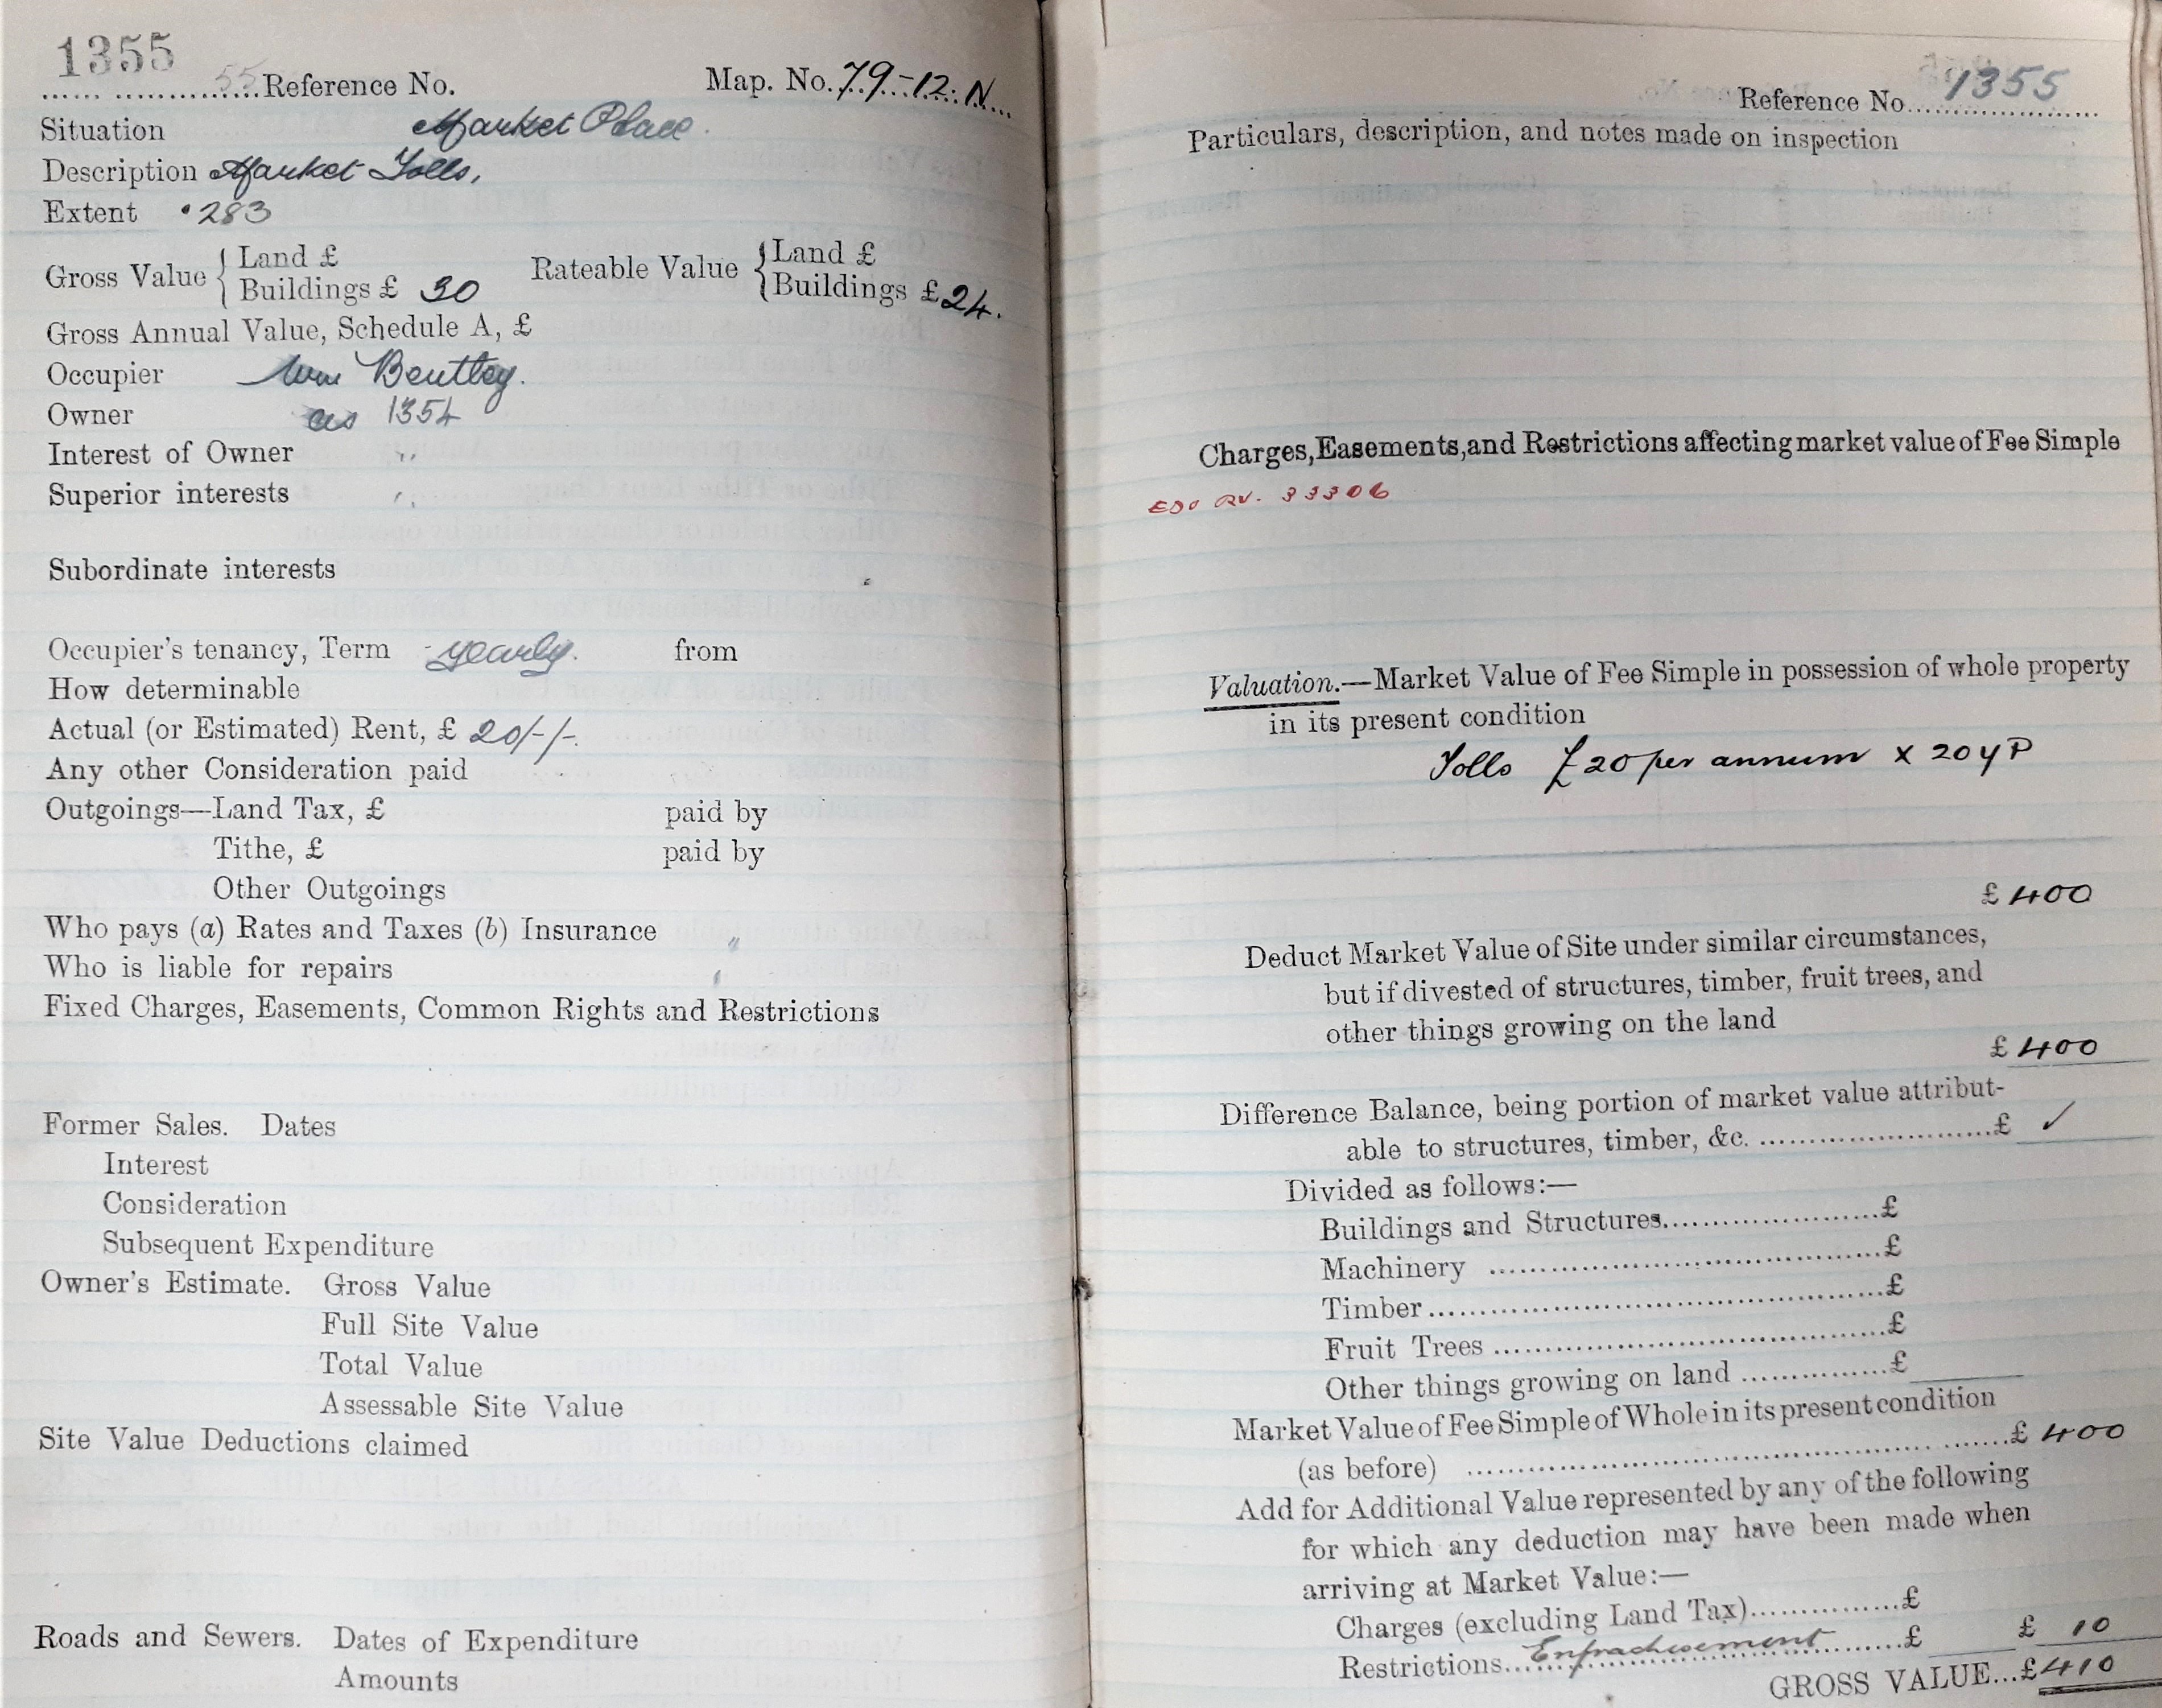 1355
...... ..............Reference No.
Map. No. 79-12. N.
Situation Market Place.
Description Market Tolls,
Extent .283
Gross Value { Land £
Buildings £ 30
Rateable Value { Land £
Buildings £ 24.
Gross Annual Value, Schedule A, £
Occupier Wm Bentley.
Owner as 1354
Interest of Owner "
Superior interests "
Subordinate interests
Occupier's tenancy, Term yearly. from
How determinable
Actual (or Estimated) Rent, £ 20/-/-.
Any other Consideration paid
Outgoings—Land Tax, £ paid by
Tithe, £ paid by
Other Outgoings
Who pays (a) Rates and Taxes (b) Insurance "
Who is liable for repairs
Fixed Charges, Easements, Common Rights and Restrictions
Former Sales. Dates
Interest
Consideration
Subsequent Expenditure
Owner's Estimate. Gross Value
Full Site Value
Total Value
Assessable Site Value
Site Value Deductions claimed
Roads and Sewers. Dates of Expenditure
Amounts
Reference No. 1355
Particulars, description, and notes made on inspection
Charges, Easements, and Restrictions affecting market value of Fee Simple
33306
Valuation.—Market Value of Fee Simple in possession of whole property
in its present condition
Tolls £20 per annum x 20 y P
£ 400
Deduct Market Value of Site under similar circumstances,
but if divested of structures, timber, fruit trees, and
other things growing on the land
£ 400
Difference Balance, being portion of market value attribut-
able to structures, timber, &c. ........................£ ✓
Divided as follows:—
Buildings and Structures......................£
Machinery ........................................£
Timber..............................................£
Fruit Trees .......................................£
Other things growing on land ...............£
Market Value of Fee Simple of Whole in its present condition
(as before) ..........................................£ 400
Add for Additional Value represented by any of the following
for which any deduction may have been made when
arriving at Market Value:—
Charges (excluding Land Tax)...............£
Restrictions...Enfrachisement.........£ £ 10
GROSS VALUE...£410